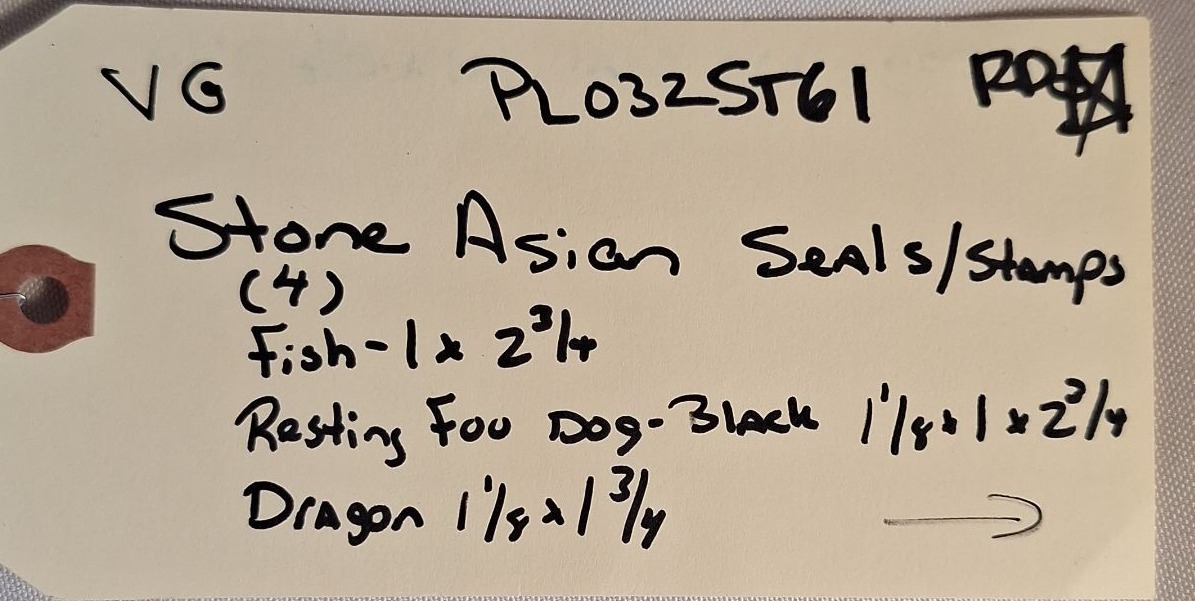 VG PL032ST61
Stone Asian Seals/Stamps
(4)
Fish-1 x 2 3/4
Resting Foo Dog-Black 1 1/8 x 1 x 2 3/4
Dragon 1 1/8 x 1 3/4